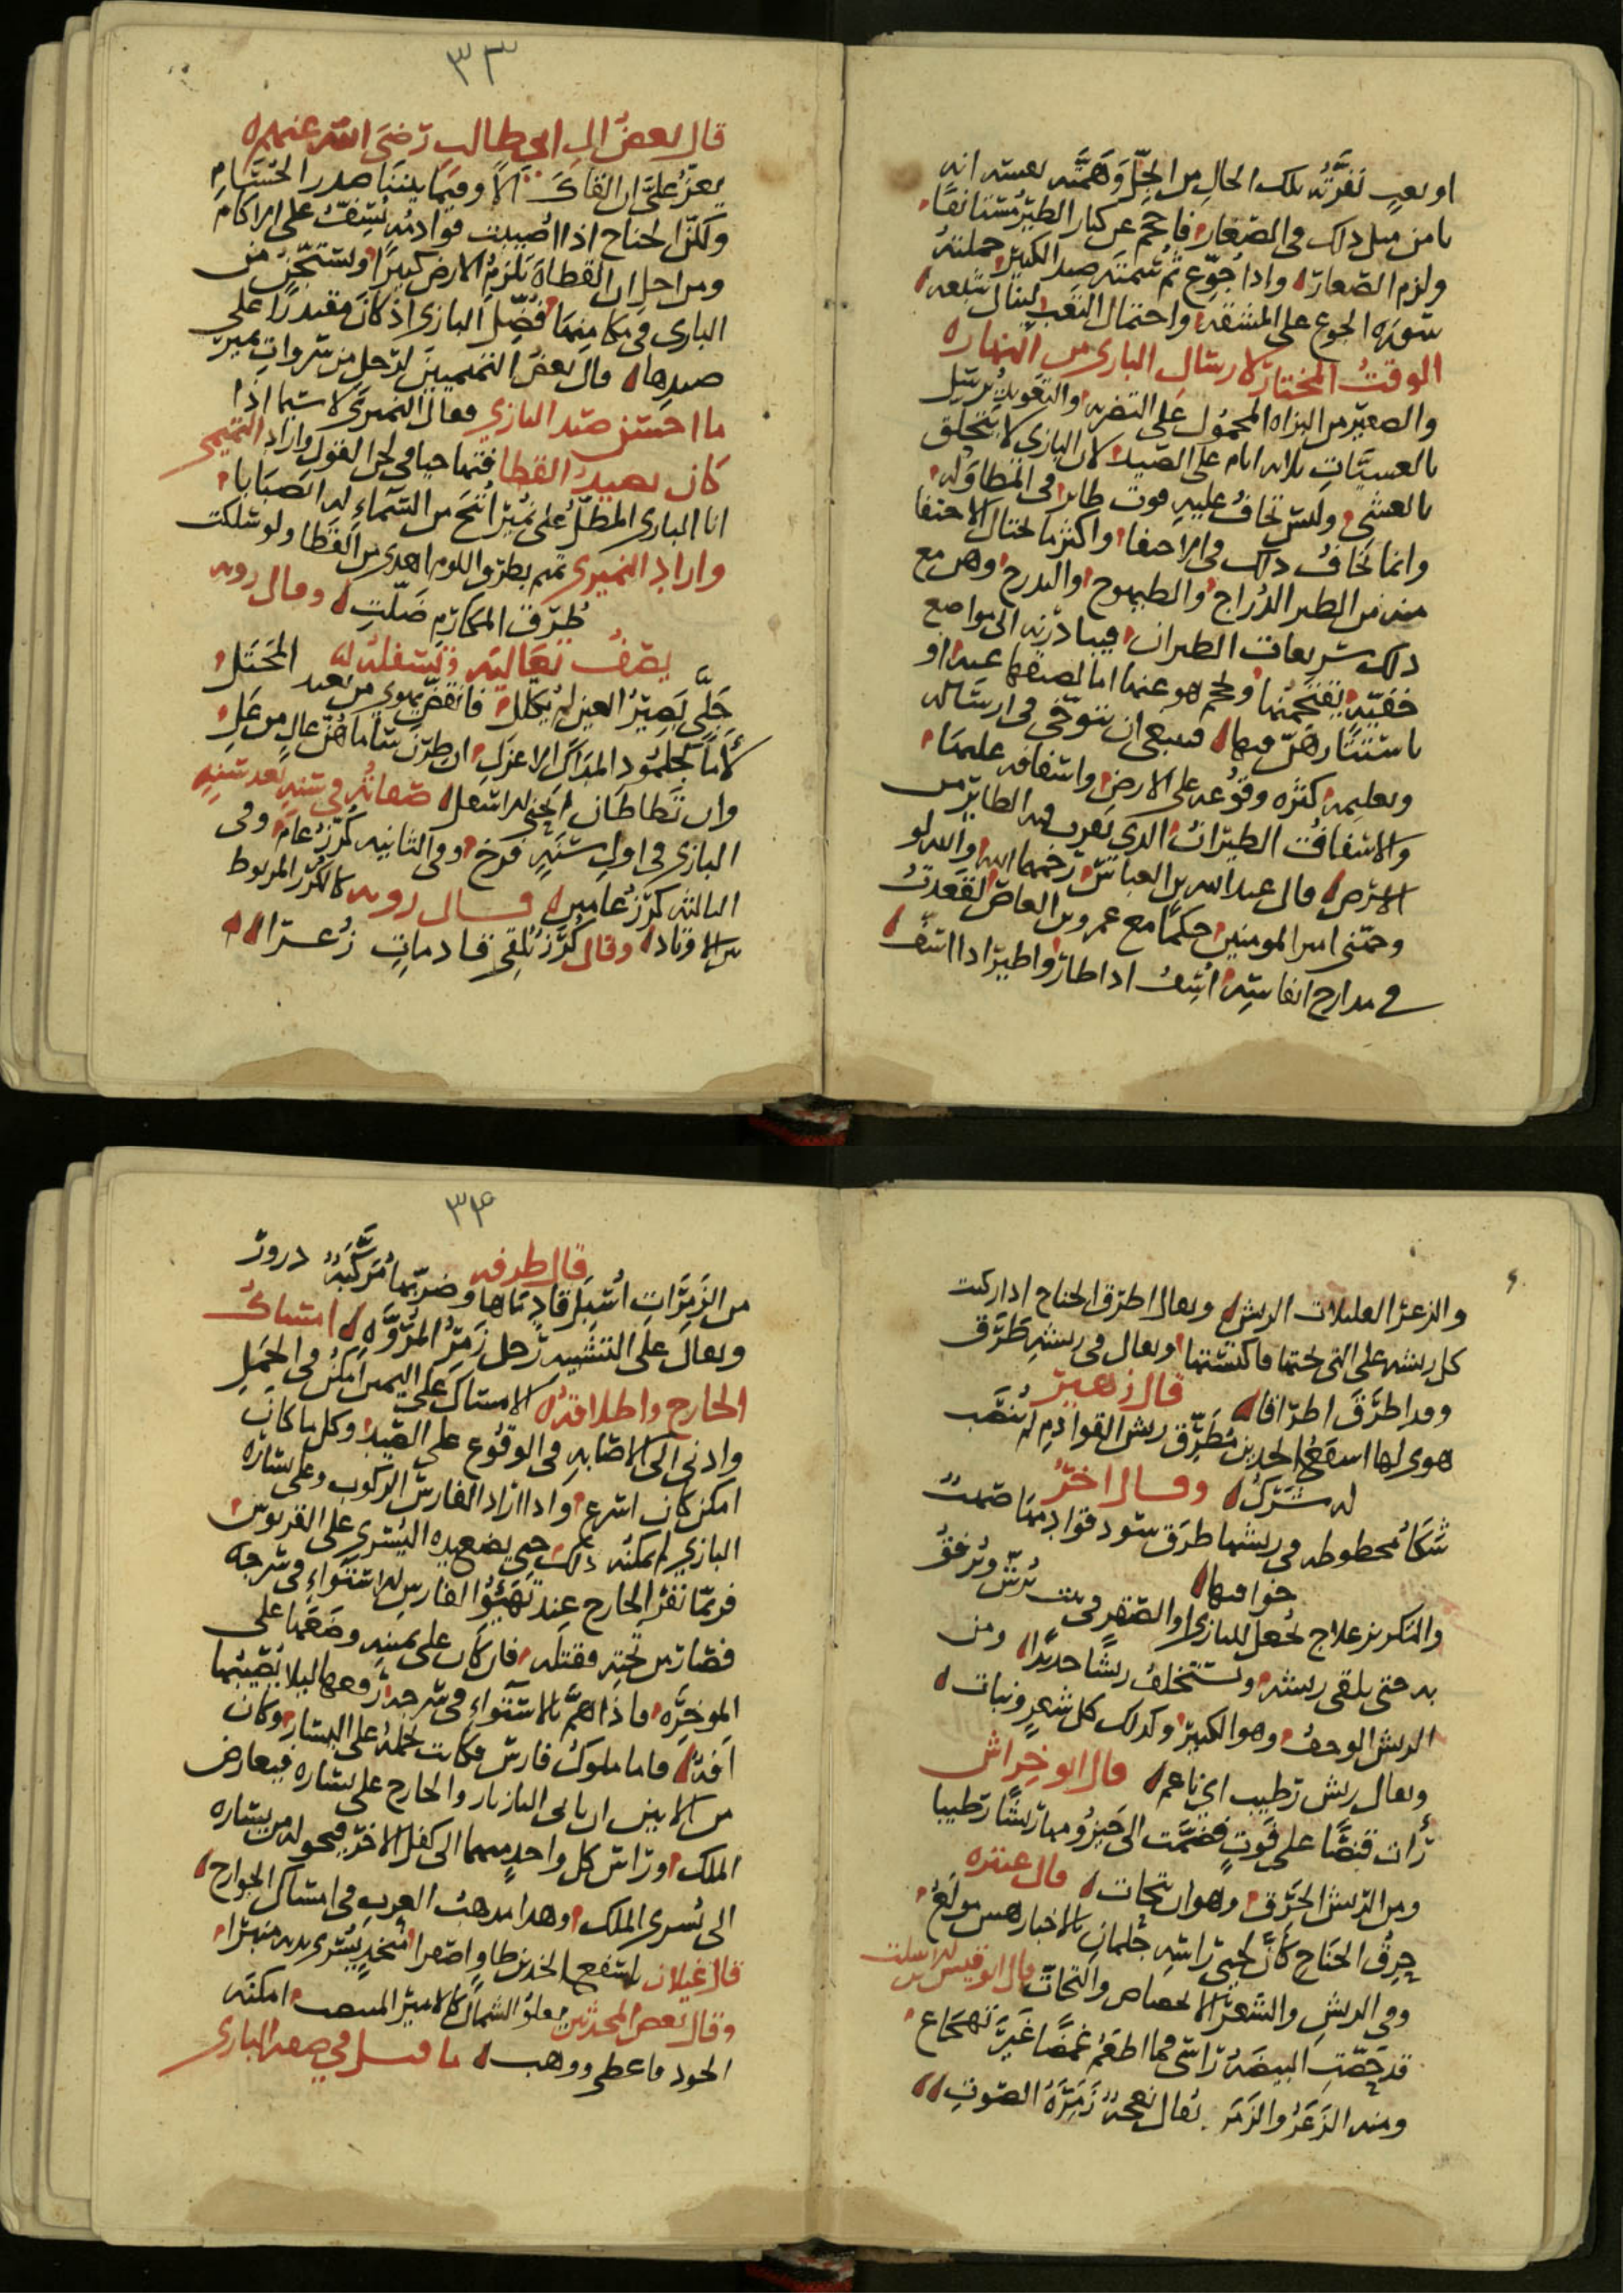 او يعيب نفرته تلك الحال من الجل وهمته بعسه انه
يا من مثل ذلك في الصغار فاحجم عن كبار الطير مستانفا
ولزم الصغار واذا جوع ثم شمته صيد الكبير حملته
سوره الجوع على المشقه واحتمال التعب لينال شبعه
الوقت المختار لارسال البازي من النهار
والصغير من البزاه المحمول على التضريه والتعويد يرسل
بالعشيات ثلاثه ايام على الصيد لان البازي لا يتحلق
بالعشي وليس يخاف عليه فوت طائر في المطاوله
وانما يخاف ذلك في الاختفا واكثر ما يحتال الاختفا
منه من الطير الدراج والطيهوج والتدرج وهن مع
ذلك سريعات الطيران فيبادرنه الى مواضع
خفيه يقتحمنها ويحجم هو عنها اما لضعفها عنه او
باستتارهن فيها فينبغي ان يتوخى في ارساله
وتعليمه كثره وقوعه على الارض واسفافه عليها
والاسفاف الطيران الذي يقرب فيه الطائر من
الارض قال عبد الله بن العباس رحمهما الله والله لو
وجهني امير المومنين حكما مع عمرو بن العاص لقعدت
في مدارج انفاسه اسف اذا طار واطير اذا اسف
٣٣
قال بعض ال ابي طالب رضي الله عنهم
يعز علي ان القاك الا وفيما بيننا صدر الحسام
ولكن الجناح اذا اصيبت قوادمه يسف على الاكام
ومن اجل ان القطاه تلزم الارض كبيرا وتستحجز من
البازي في مكامنها فضل البازي اذ كان مقتدرا على
صيدها قال بعض التميميين لرجل من سروات نمير
ما احسن صيد البازي فقال النميري لا سيما اذا
كان يصيد القطا فتهاجيا في لحن القول واراد التميمي
انا البازي المطل على نمير اتيح من السماء له انصبابا
واراد النميري تميم بطرق اللوم اهدى من القطا ولو سلكت
طرق المكارم ضلت وقال رؤبه
يصف تعاليه وتسفله
جلى بصير العين لم يكلل فانقض يهوي من بعيد المختل
وفي
البازي في اول سنيه فرخ وفي الثانيه كرز عام
الثالثه كرز عامين قال رؤبه كالكرز المربوط
بين الاوتاد وقال كرز يلقي قادمات زعرا
والزعر القليلات الريش ويقال اطرق الجناح اذا ركبت
كل ريشه على التي تحتها فاكتستها ويقال في ريشه طرق
وقد اطرق اطراقا قال زهير
هوى لها اسفع الخدين مطرق ريش القوادم لم ينصب
له شرك وقال اخر
سكاء مخطوطه في ريشها طرق سود قوادمها صهب
خوافيها
والتكريز علاج يجعل للبازي والصقر في بيت يرش ويزعق
به حتى يلقي ريشه ويستخلف ريشا جديدا ومن
الريش الوحف وهو الكبير وكذلك كل شعر ونبات
ويقال ريش رطيب اي ناعم قال ابو خراش
رات قنصا على فوت فضمت الى حيزومها ريشا رطيبا
ومن الريش الحرق وهو ان يتحات قال عنتره
حرق الجناح كان لحيي راسه جلمان بالاخبار هش مولع
وفي الريش والشعر الانحصاص والتحات قال ابو قيس بن الاسلت
قد حصت البيضه راسي فما اطعم غمضا غير تهجاع
ومنه الزعر والزمر يقال نعجه زمره الصوف
٣٤
قال طرفه
من الزمرات اسبل قادماها وضرتها مركنه درور
ويقال على التشبيه رجل زمر المروه امساك
الجارح واطلاقه الامساك على اليمين امكن في الحمل
وادنى الى الاصابه في الوقوع على الصيد وكل ما كان
امكن كان اسرع واذا اراد الفارس الركوب وعلى يساره
البازي لم يمكنه ذلك حتى يضع يده اليسرى على القربوس
فربما نفر الجارح عند تهيؤ الفارس للاستواء في سرجه
فصار من تحته فقتله فان كان على يمينه وضعها على
الموخره فاذا هم بالاستواء في سرجه رفعها لئلا يصيبها
افه فاما ملوك فارس فكانت تحمله على اليسار وكان
من الايين ان ياتي البازيار والجارح على يساره فيعارض
الملك وراس كل واحد منهما الى كفل الاخر فيحوله من يساره
الى يسرى الملك وهذا مذهب العرب في امساك الجوارح
قال غيلان
وقال بعض المحدثين يعلو الشمال كالامير المنتصب امكنه
الجود فاعطى ووهب ما قيل في صفه البازي